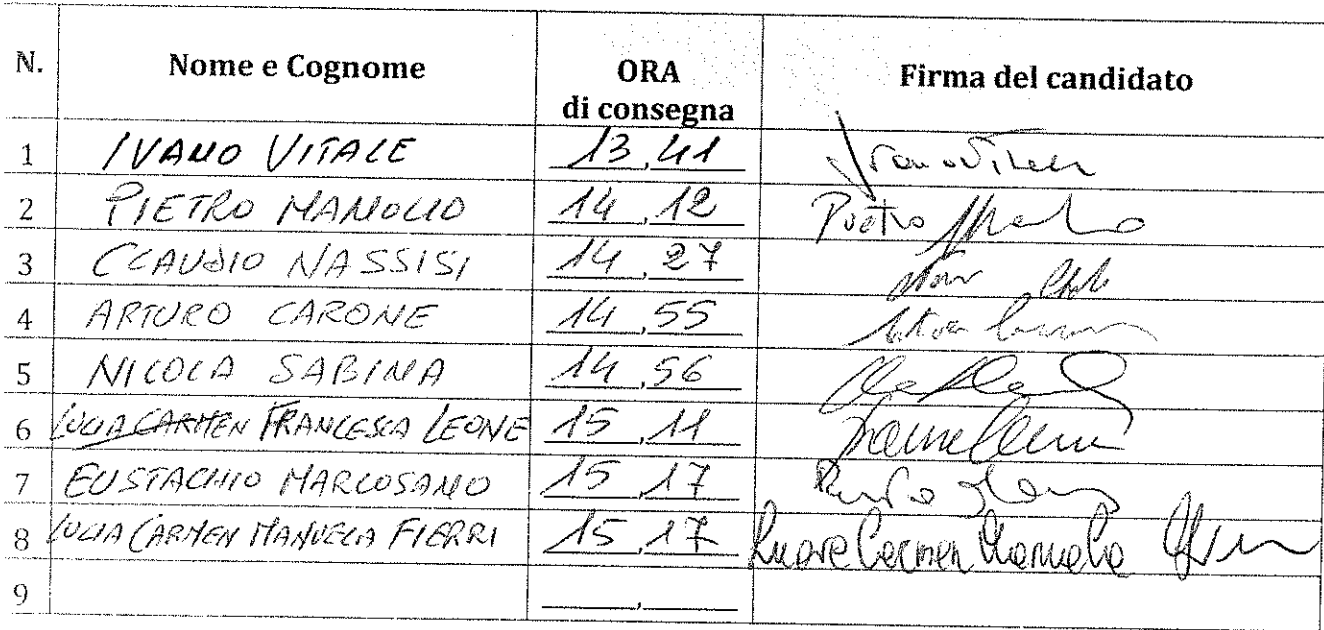 N. Nome e Cognome ORA di consegna Firma del candidato
1 IVANO VITALE 13,41
2 PIETRO MANOLIO 14,12 Pietro
3 CLAUDIO NASSISI 14,27
4 ARTURO CARONE 14,55
5 NICOLA SABINA 14,56
6 LUCIA CARMEN FRANCESCA LEONE 15,11
7 EUSTACHIO MARCOSANO 15,17
8 LUCIA CARMEN MANUELA FIERRI 15,17 Carmen Manuela
9 ,